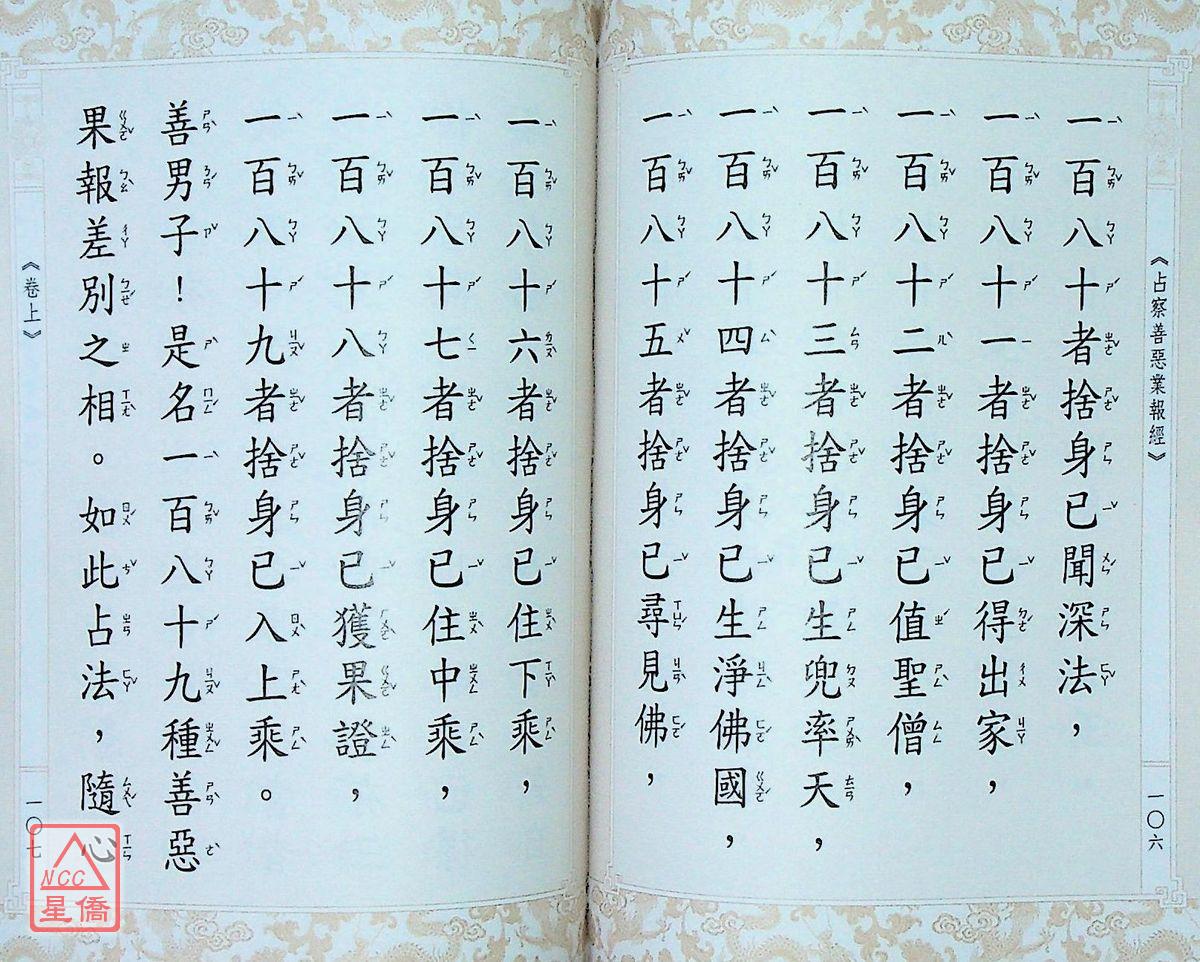 《占察善惡業報經》
一百八十者捨身已聞深法，
一百八十一者捨身已得出家，
一百八十二者捨身已值聖僧，
一百八十三者捨身已生兜率天，
一百八十四者捨身已生淨佛國，
一百八十五者捨身已尋見佛，
一〇六
一百八十六者捨身已住下乘，
一百八十七者捨身已住中乘，
一百八十八者捨身已獲果證，
一百八十九者捨身已入上乘。
善男子！是名一百八十九種善惡
果報差別之相。如此占法，隨心
《卷上》
一〇七
NCC
星僑